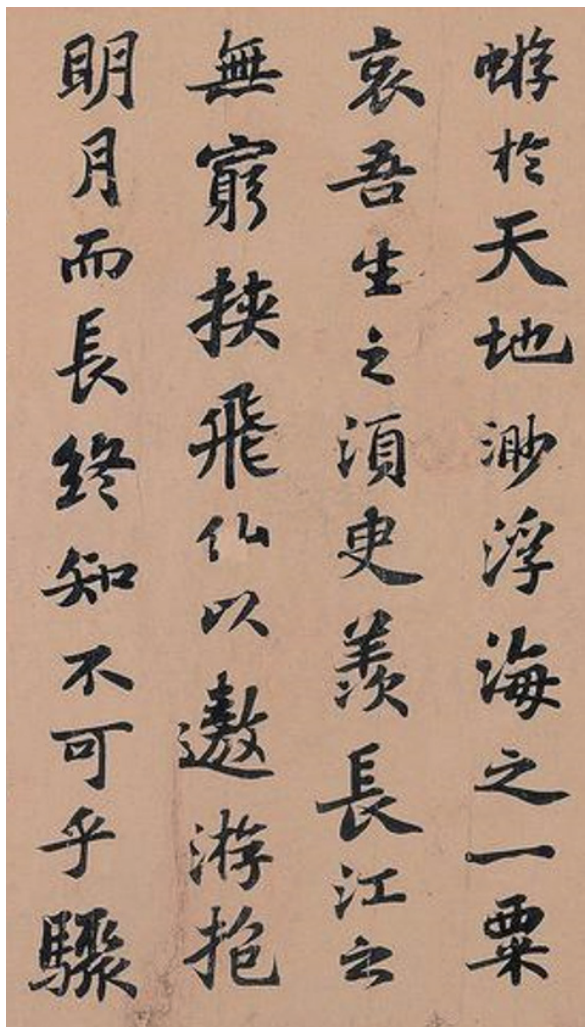 蝣於天地渺浮海之一粟
哀吾生之須臾羨長江之
無窮挾飛仙以遨游抱
明月而長終知不可乎驟